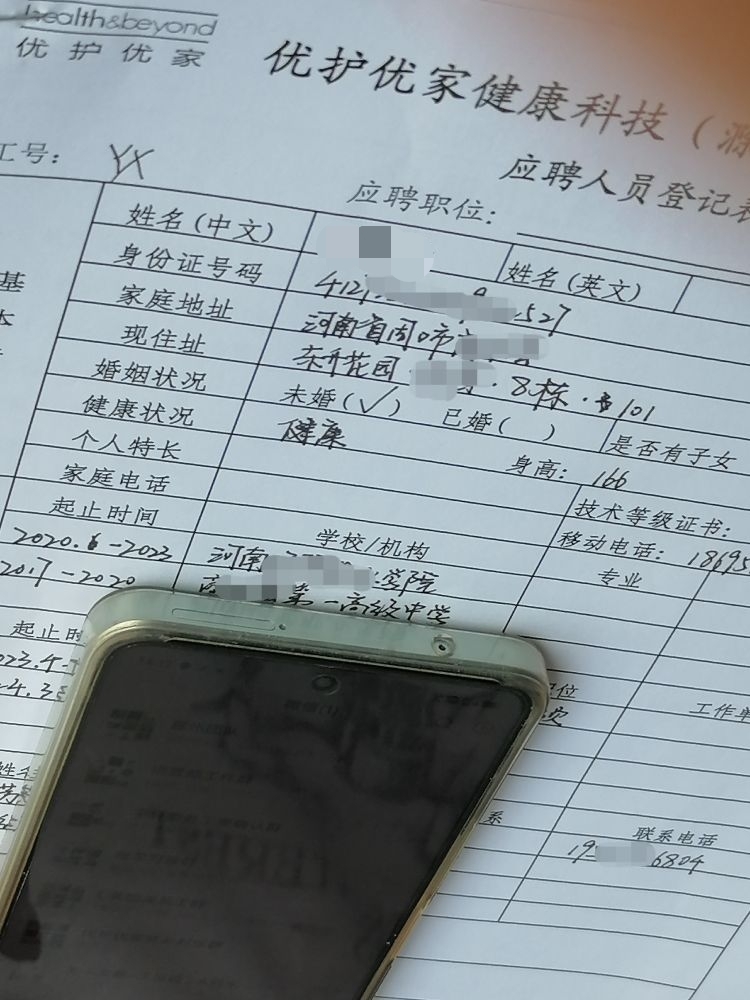 health&beyond
优护优家
优护优家健康科技（
应聘人员登记表
工号：YX
应聘职位：
姓名(中文)
姓名(英文)
身份证号码 412 527
家庭地址 河南省周口市
现住址 东升花园 8栋·101
婚姻状况 未婚(√) 已婚( ) 是否有子女
健康状况 健康 身高：166
个人特长 技术等级证书：
家庭电话 移动电话：18695
起止时间 学校/机构 专业
2020.6-2023 河南 学院
2017-2020 第一高级中学
起止时
023.4-
职位 工作单
姓名
系 联系电话
19 6804